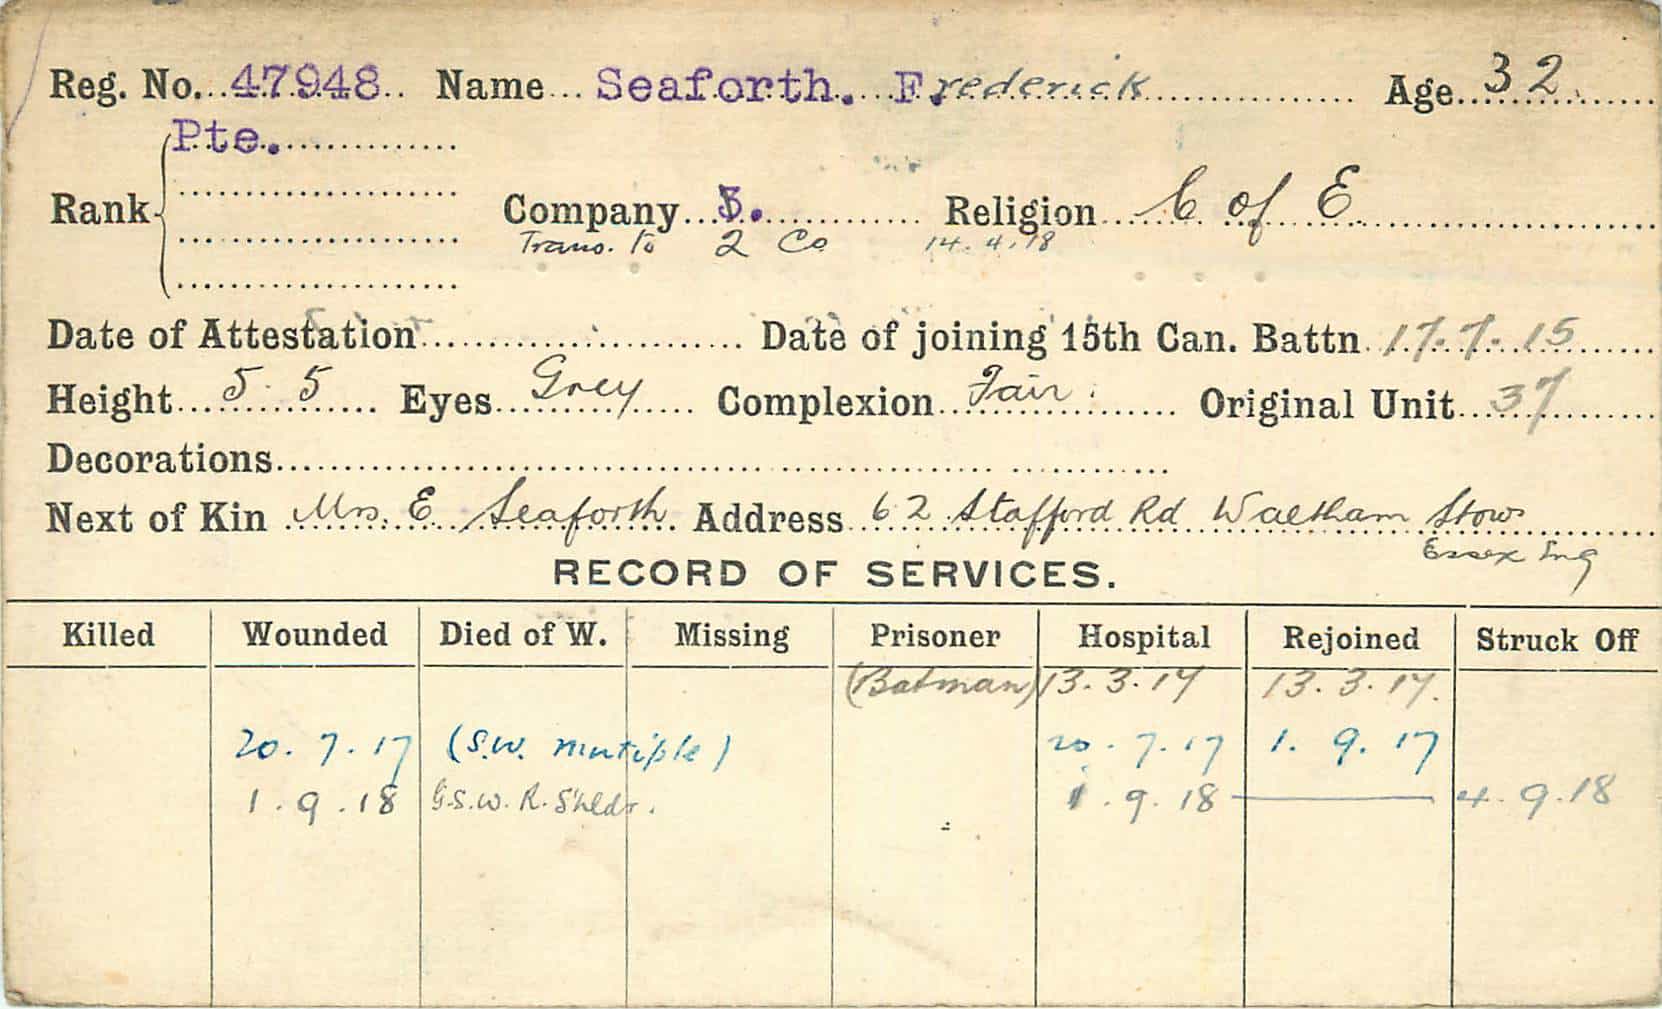 Reg. No. 47948 Name Seaforth. Frederick Age 32
Pte.
Rank Company 3. Religion C of E
Trans. to 2 Co 14.4.18
Date of Attestation Date of joining 15th Can. Battn 17.7.15
Height 5 5 Eyes Grey Complexion Fair Original Unit 37
Decorations
Next of Kin Mrs. E Seaforth Address 62 Stafford Rd Waltham Stow
Essex Eng
RECORD OF SERVICES.
Killed Wounded Died of W. Missing Prisoner Hospital Rejoined Struck Off
(Batman) 13.3.17 13.3.17.
20.7.17 (S.W. mutiple) 20.7.17 1.9.17
1.9.18 G.S.W. R. Shldr. 1.9.18 4.9.18